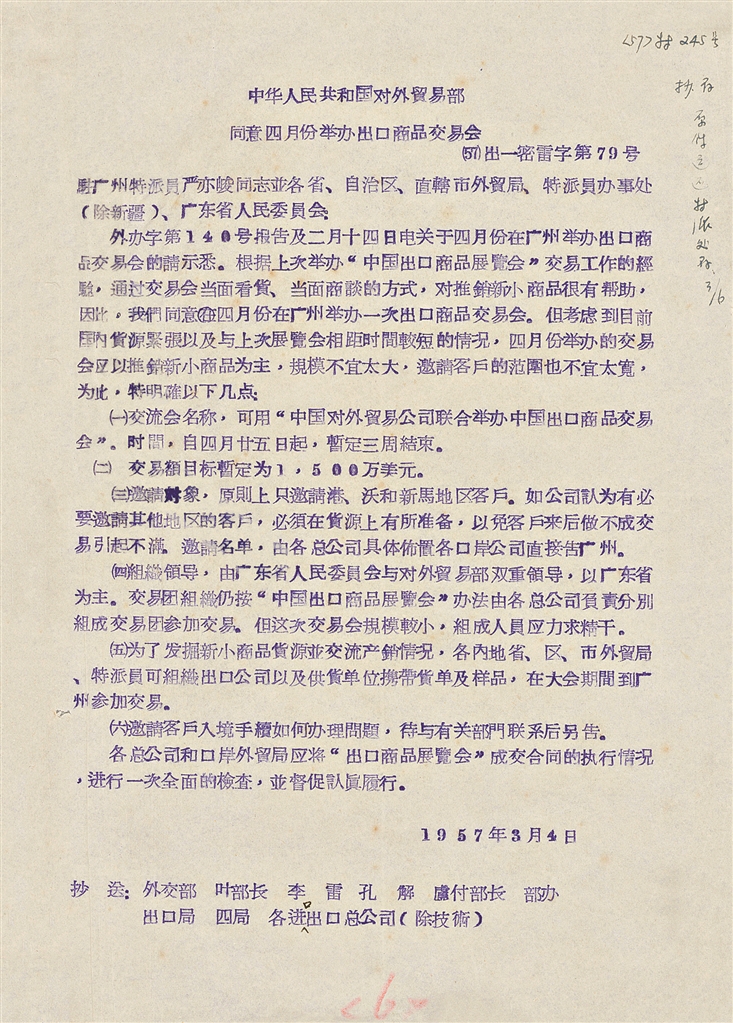 245号
抄存
中华人民共和国对外貿易部
同意四月份举办出口商品交易会
(57)出一密雷字第79号
駐广州特派員严亦峻同志並各省、自治区、直轄市外貿局、特派員办事处
（除新疆）、广东省人民委員会：
外办字第140号报告及二月十四日电关于四月份在广州举办出口商
品交易会的請示悉。根据上次举办“中国出口商品展覽会”交易工作的經
驗，通过交易会当面看貨、当面商談的方式，对推銷新小商品很有帮助，
因此，我們同意在四月份在广州举办一次出口商品交易会。但考慮到目前
国内貨源緊張以及与上次展覽会相距时間較短的情况，四月份举办的交易
会应以推銷新小商品为主，規模不宜太大，邀請客戶的范圍也不宜太寬，
为此，特明確以下几点：
㈠交流会名称，可用“中国对外貿易公司联合举办中国出口商品交易
会”。时間，自四月廿五日起，暫定三周結束。
㈡　交易額目标暫定为1,500万美元。
㈢邀請对象，原則上只邀請港、沃和新馬地区客戶。如公司認为有必
要邀請其他地区的客戶，必須在貨源上有所准备，以免客戶来后做不成交
易引起不滿。邀請名单，由各总公司具体佈置各口岸公司直接告广州。
㈣組織領导，由广东省人民委員会与对外貿易部双重領导，以广东省
为主。交易团組織仍按“中国出口商品展覽会”办法由各总公司負責分别
組成交易团参加交易。但这次交易会規模較小，組成人员应力求精干。
㈤为了发掘新小商品貨源並交流产銷情况，各内地省、区、市外貿局
、特派員可組織出口公司以及供貨单位携帶貨单及样品，在大会期間到广
州参加交易。
㈥邀請客戶入境手續如何办理問題，待与有关部門联系后另告。
各总公司和口岸外貿局应将“出口商品展覽会”成交合同的执行情况
，进行一次全面的檢查，並督促認眞履行。
1957年3月4日
抄　送：外交部　叶部长　李　雷　孔　解　盧付部长　部办
出口局　四局　各进口出口总公司（除技術）
6